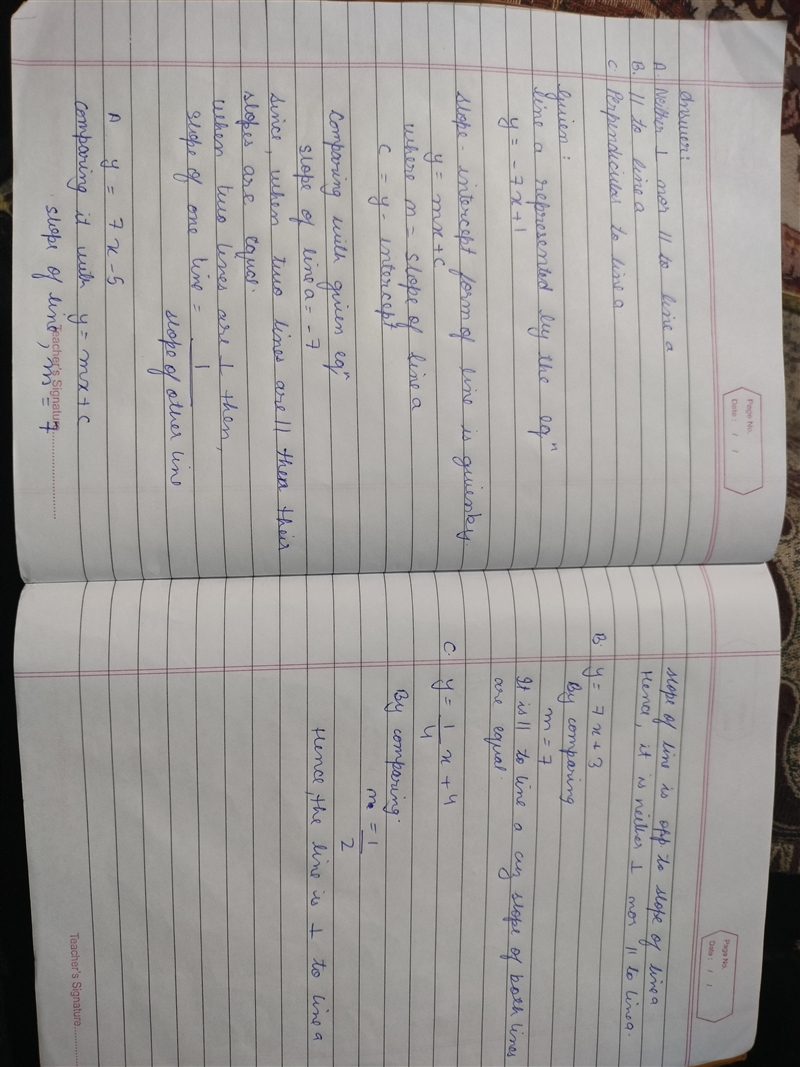 Page No.
Date: / /
Answer:
A. Neither ⊥ nor || to line a
B. || to line a
C Perpendicular to line a
Given:
line a represented by the eqⁿ
y = -7x+1
slope-intercept form of line is given by
y = mx+c
where m = slope of line a
c = y-intercept
comparing with given eqⁿ
slope of line a = -7
since, when two lines are || then their
slopes are equal.
when two lines are ⊥ then,
slope of one line = 1
slope of other line
A y = 7x-5
comparing it with y = mx+c
slope of line, m = 7
Teacher's Signature
Page No.
Date: / /
slope of line is opp to slope of line a
Hence, it is neither ⊥ nor || to line a.
B. y = 7x+3
By comparing
m = 7
It is || to line a as slope of both lines
are equal.
C. y = 1/4 x + 4
By comparing.
m = 1/2
Hence, the line is ⊥ to line a
Teacher's Signature